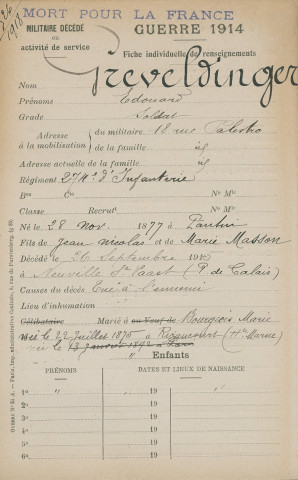 MORT POUR LA FRANCE
MILITAIRE DÉCÉDÉ
en
activité de service
GUERRE 1914
Fiche individuelle de renseignements
Nom Greveldinger
Prénoms Edouard
Grade Soldat
Adresse à la mobilisation du militaire 18 rue Palestro
de la famille id
Adresse actuelle de la famille id
Régiment 274e d'Infanterie
Bon Cie No Mle
Classe Recrut No Mle
Né le 28 Nov. 1877 à Pantin
Fils de Jean Nicolas et de Marie Masson
Décédé le 26 Septembre 191
à Neuville St Vaast (P. de Calais)
Causes du décès Tué à l'ennemi
Lieu d'inhumation
Célibataire Marié à ou Veuf de Bourgeois Marie
née le 22 Juillet 1875 à (Hte Marne)
née le 13 Janvier 1892 à
Enfants
PRÉNOMS DATES ET LIEUX DE NAISSANCE
1o " 19 "
2o 19
3o 19
4o 19
5o 19
6o 19